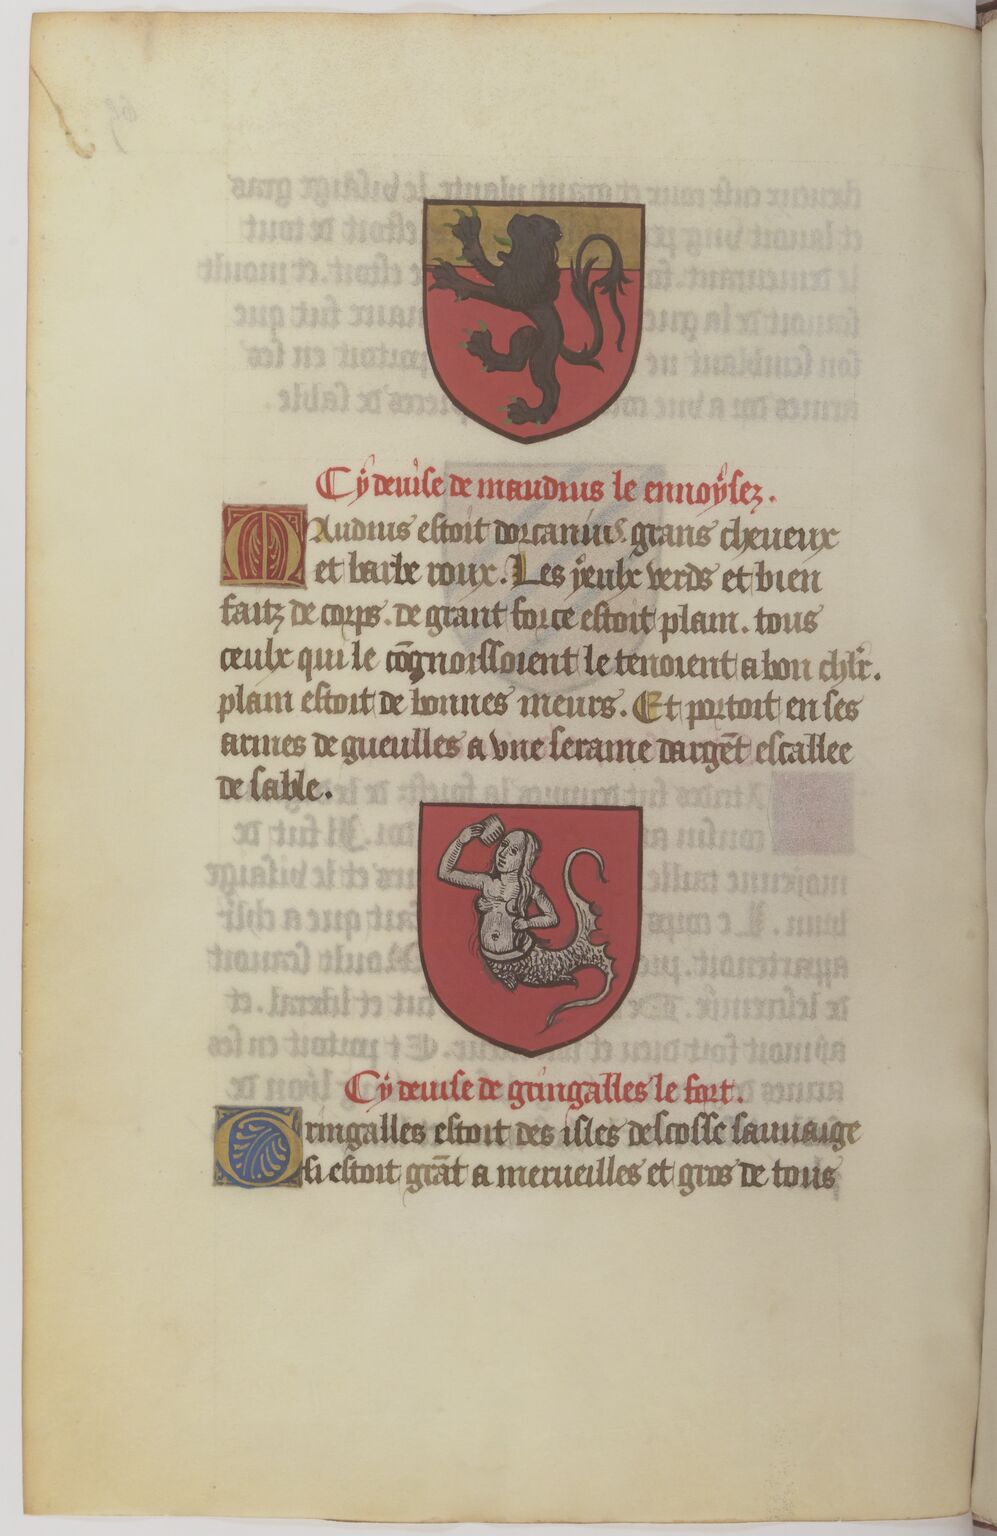 Cÿ deuise de maudius le ennoÿsez.
Maudius estoit dorcanius grans cheueux
et barbe roux. Les ÿeulx verds et bien
faitz de corps. de grant force estoit plain. tous
ceulx qui le cõgnoissoient le tenoient a bon chl̃r.
plain estoit de bonnes meurs. Et portoit en ses
armes de gueulles a vne seraine dargẽt escallee
de sable.
Cÿ deuise de gringalles le fort.
Gringalles estoit des isles descosse sauuaige
si estoit grãt a merueilles et gros de tous